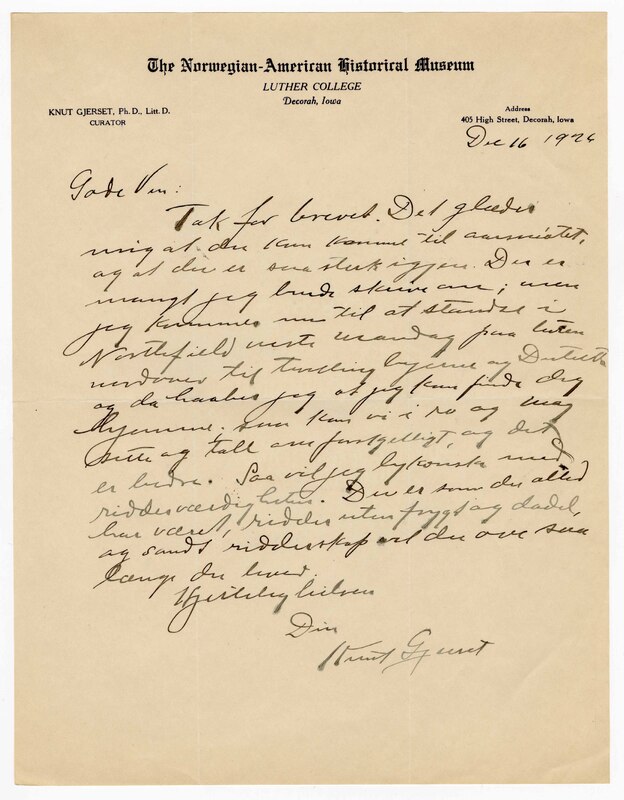 The Norwegian-American Historical Museum
LUTHER COLLEGE
Decorah, Iowa
KNUT GJERSET, Ph. D., Litt. D.
CURATOR
Address
405 High Street, Decorah, Iowa
Dec 16 1926
Gode Ven:
Tak for brevet. Det glæder
mig at du kan komme til aarsmötet,
og at du er saa sterk igjen. Der er
mangt jeg burde skrive om; men
jeg kommer nu til at standse i
Northfield næste mandag paa turen
nordover til tvillingbyerne og Duluth
og da haaber jeg at jeg kan finde dig
hjemme. saa kan vi i ro og mag
sitte og tale om forskjelligt, og det
er bedre. Saa vil jeg lykønske med
ridderværdigheten. Du er som du altid
har været, ridder uten frygt og dadel,
og sandt ridderskap vil du øve saa
længe du lever.
Hjertelig hilsen
Din
Knut Gjerset